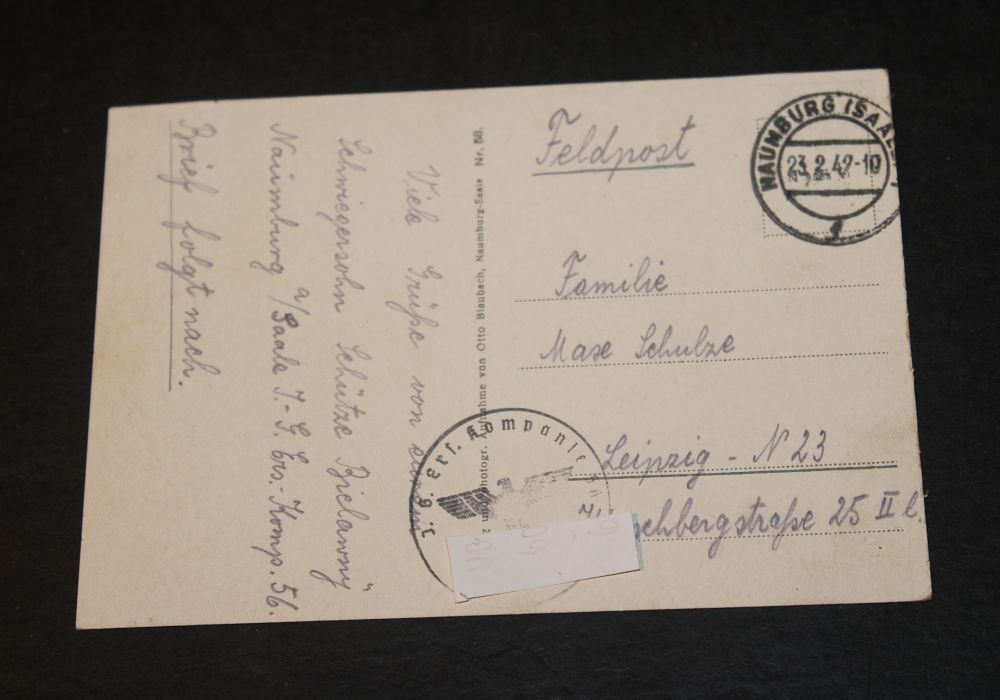 Feldpost
NAUMBURG (SAALE)
23.2.42-10
Familie
Max Schulze
Leipzig - N 23
schbergstraße 25 II l.
Viele Grüße von
Schwiegersohn Schütze Bielawny
Naumburg a/Saale J.-G. Ers.-Komp. 56.
Brief folgt nach.
Aufnahme von Otto Blaubach, Naumburg-Saale Nr. 58.
J. G. Ers. Kompanie